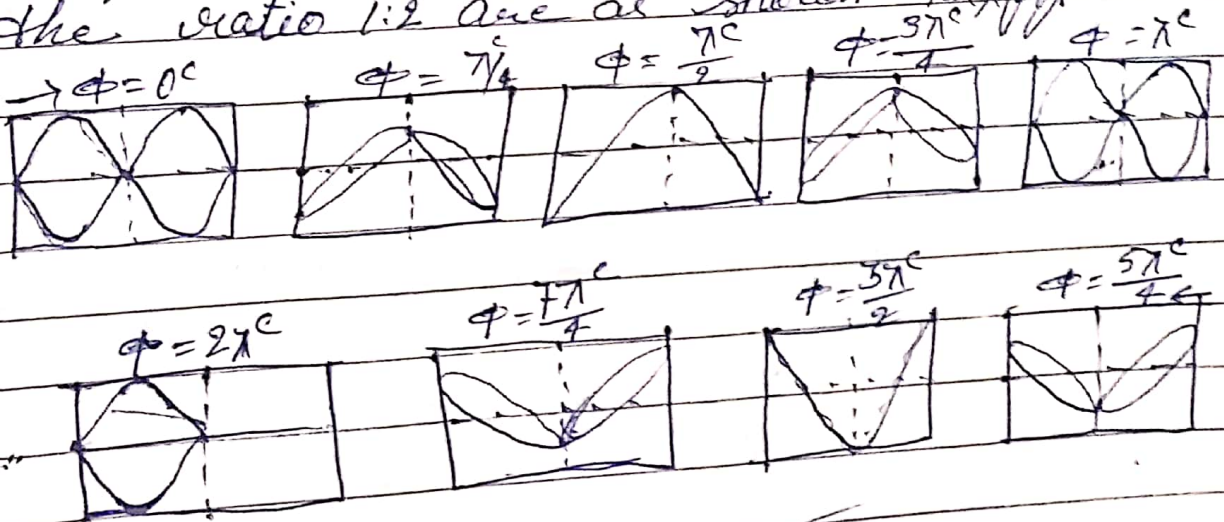 the ratio 1:2 are as shown
→ Φ = 0ᶜ Φ = π/4ᶜ Φ = πᶜ/2 Φ = 3πᶜ/4 Φ = πᶜ
Φ = 2πᶜ Φ = 7πᶜ/4 Φ = 3πᶜ/2 Φ = 5πᶜ/4 ←